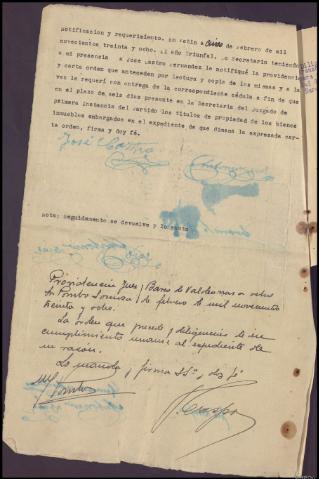 notificación y requerimiento. En Patin a cinco de Febrero de mil
novecientos treinta y ocho. II año triunfal. Yo Secretario teniendo
a mi presencia a Jose Castro Fernandez le notifiqué la providencia
y carta orden que anteceden por lectura y copia de los mismas y a la
vez le requerí con entrega de la correspondiente cédula a fin de que
en el plazo de seis dias presente en la Secretaria del Juzgado de
primera instancia del Partido los titulos de propiedad de los bienes
inmuebles embargados en el expediente de que dimana la expresada car-
ta orden, firma y doy fé.
José Castro
nota: seguidamente se devuelve
Providencia Juez Barco de Valdeorras a ocho
Sr. de febrero de mil novecientos
treinta y ocho.
La orden que precede y diligencias de su
cumplimiento unanse al expediente de
su razon.
Lo manda y firma SSª, doy fé